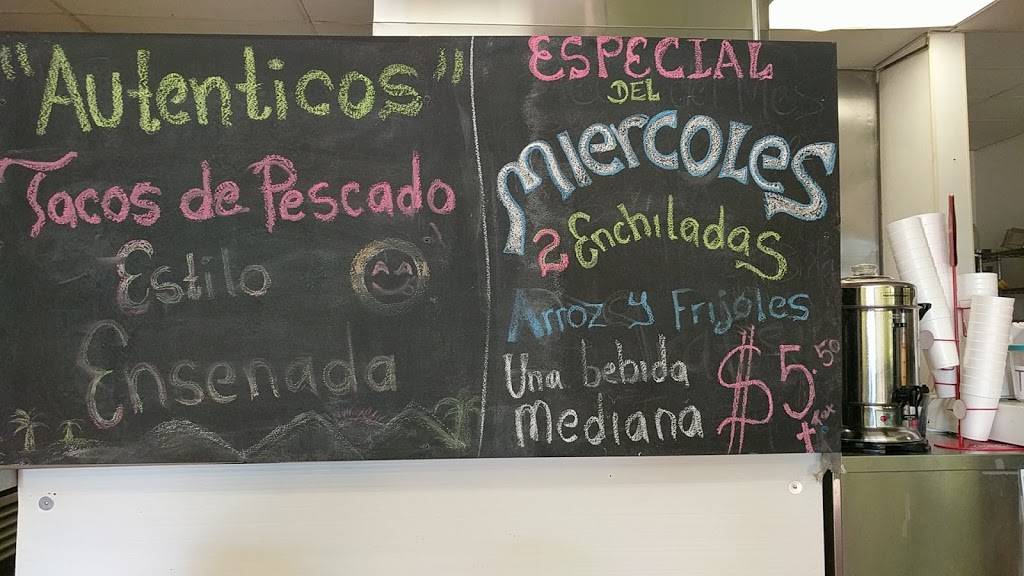 "Autenticos"
Tacos de Pescado
Estilo
Ensenada
ESPECIAL
DEL
MIERCOLES
2 Enchiladas
Arroz y Frijoles
Una bebida
Mediana
$5.50
+ tax